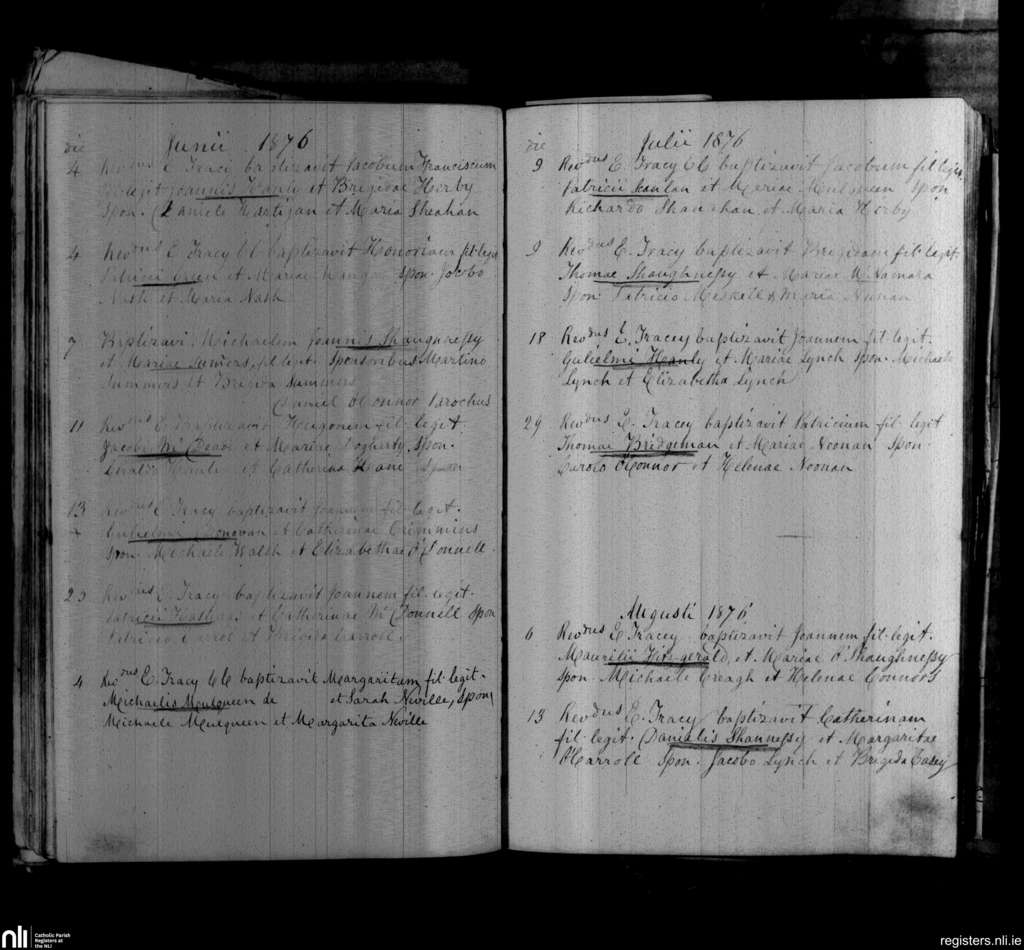 die Junii 1876
4 Revdus E Tracy baptizavit Jacobum Franciscum
fil legit Joannis Hanly et Brigidae Hirby
Spon. Daniele Hartigan et Maria Sheahan
4 Revdus E Tracy CC baptizavit Honoriam fil legit
Patricii et Mariae Spon. Jacobo
Nash et Maria Nash
7 Baptizavi Michaelem Joannis Shaughnessy
et Mariae Summers, fil legit. Sponsoribus Martino
Summers et Brigida Summers
Daniel O Connor Parochus
11 Revdus E baptizavit Hugonem fil. legit
Jacobi Mc et Mariae Dogherty Spon.
et Catherina Spon
13 Revdus E Tracy baptizavit Joannem fil legit.
Gulielmi Donovan et Catherinae Crimmins
Spon. Michaele Walsh et Elizabethae O'Donnell.
25 Revdus E. Tracy baptizavit Joannem fil. legit.
Patricii et Catherinae Mc Donnell Spon
Patricio Carrol et Carroll
4 Revdus E. Tracy CC baptizavit Margaritam fil legit.
Michaelis Mulqueen de et Sarah Neville, Spon
Michaele Mulqueen et Margarita Neville
die Julii 1876
9 Revdus E Tracy CC baptizavit Jacobum fil legit.
Patricii Scanlan et Mariae Mulqueen Spon
Richardo Shanahan et Maria Hirby
9 Revdus E. Tracy baptizavit Brigidam fil legit
Thomae Shaughnessy et Mariae McNamara
Spon. Patricio Meskell & Maria Nunan
18 Revdus E. Tracey baptizavit Joannem fil-legit.
Gulielmi Hanly et Mariae Lynch Spon. Michaele
Lynch et Elizabetha Lynch
29 Revdus E. Tracey baptizavit Patricium fil legit
Thomae Bridgeman et Mariae Noonan Spon
Carolo O'Connor et Helenae Noonan
Augusti 1876
6 Revdus E Tracey baptizavit Joannem fil-legit.
Maurilii Fitz-gerald, et Mariae O'Shaughnessy
Spon. Michaele Creagh et Helenae Connors
13 Revdus E. Tracy baptizavit Catherinam
fil-legit. Danielis Shaunessy et Margaritae
O'Carroll Spon. Jacobo Lynch et Brigida Casey
nli Catholic Parish
Registers at
the NLI
registers.nli.ie